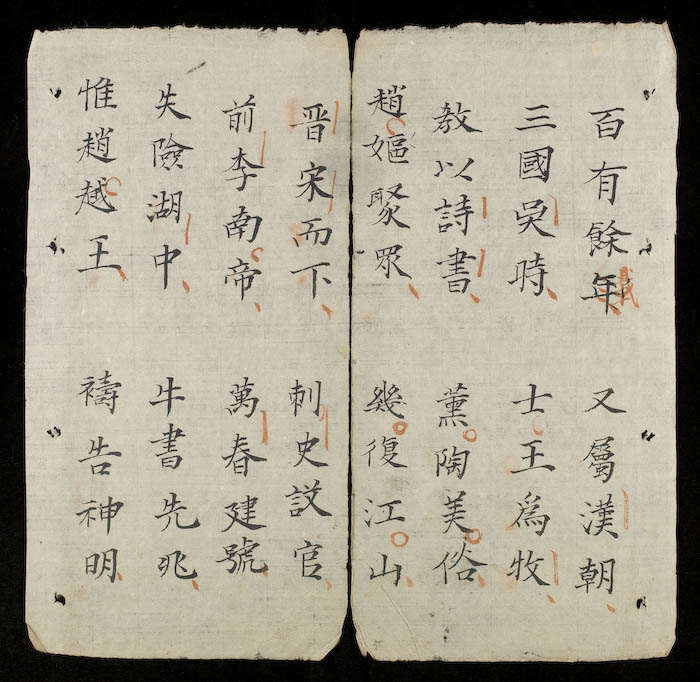 百有餘年 又屬漢朝
三國吳時 士王爲牧
教以詩書 薰陶美俗
趙嫗聚眾 幾復江山
晋宋而下 刺史設官
前李南帝 萬春建號
失險湖中 牛書先兆
惟趙越王 禱告神明